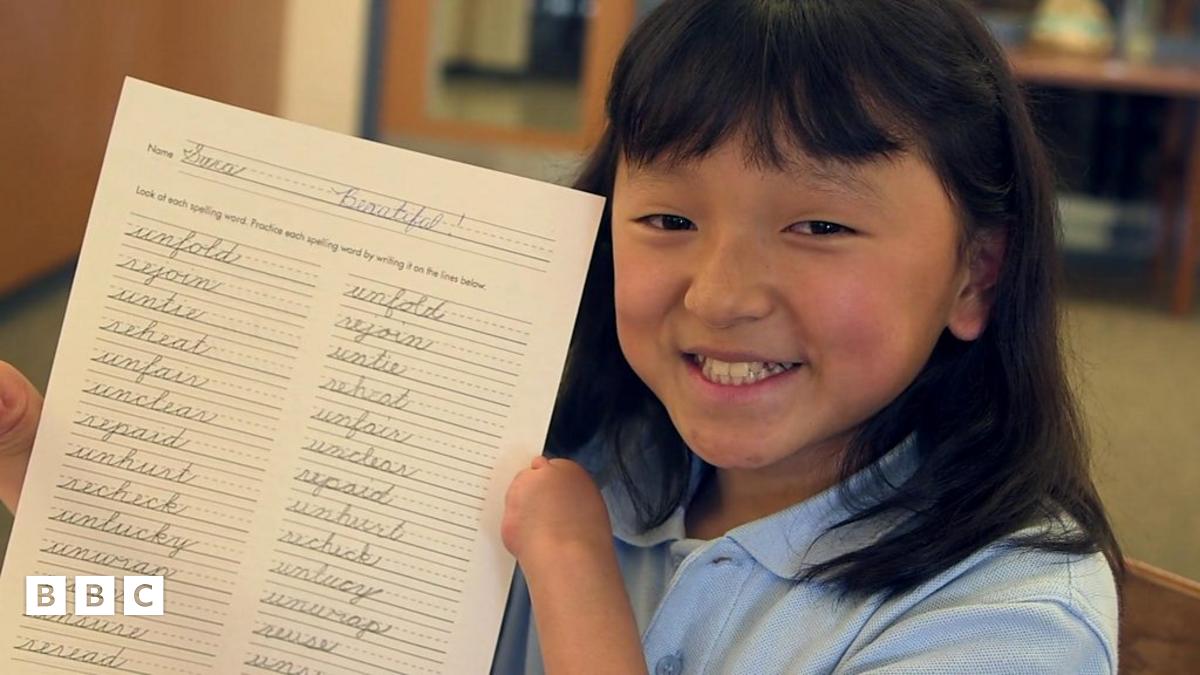 Name Sara
Beautiful!
Look at each spelling word. Practice each spelling word by writing it on the lines below.
unfold
rejoin
untie
reheat
unfair
unclear
repaid
unhurt
recheck
unlucky
unwrap
unsure
reread
unfold
rejoin
untie
reheat
unfair
unclear
repaid
unhurt
recheck
unlucy
unwrap
reuse
BBC